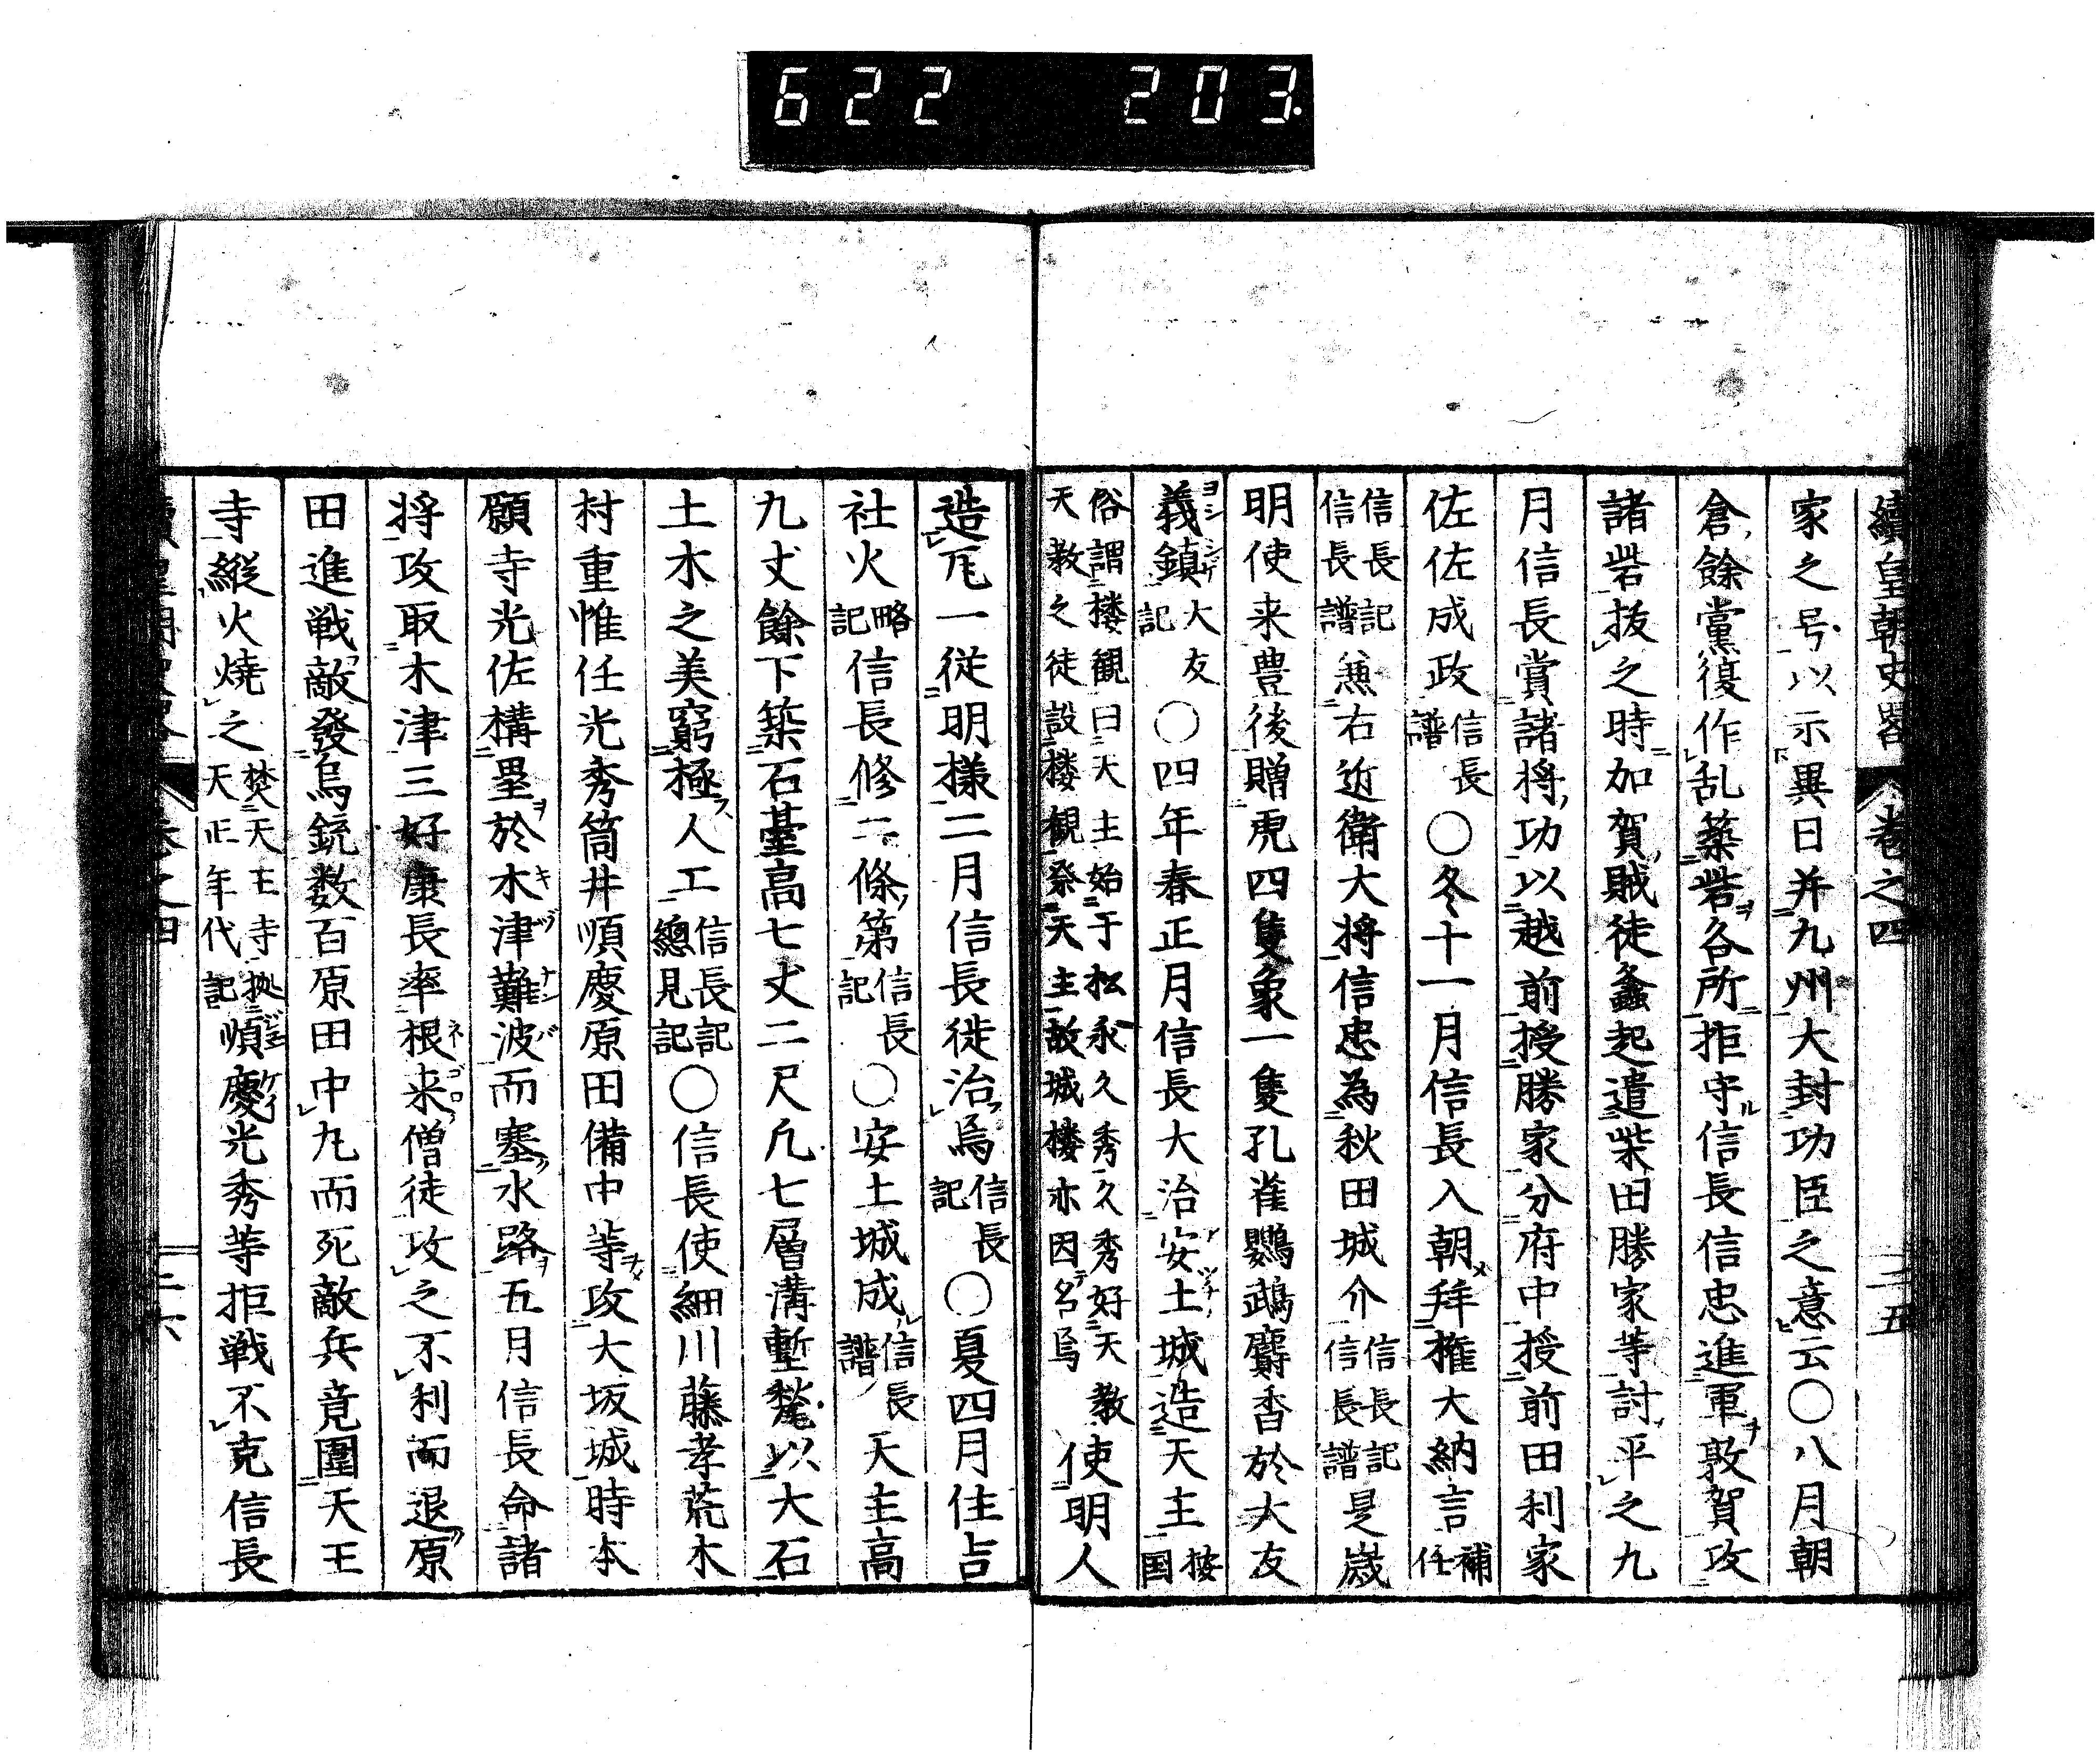 622 203.
續皇朝史畧 卷之四 二五
家之号以示異日并九州大封功臣之意云〇八月朝
倉餘黨復作乱築砦各所拒守信長信忠進軍敦賀攻
諸砦抜之時加賀賊徒蠭起遣柴田勝家等討平之九
月信長賞諸将功以越前授勝家分府中授前田利家
佐佐成政信長譜〇冬十一月信長入朝拜權大納言補任
信長記信長譜兼右近衛大将信忠為秋田城介信長記信長譜是歳
明使来豊後贈虎四隻象一隻孔雀鸚鵡麝香於大友
義鎮大友記〇四年春正月信長大治安土城造天主按国
俗謂楼観曰天主始于松永久秀久秀好天教天教之徒設楼観祭天主故城楼亦因名焉使明人
造瓦一從明様二月信長徙治焉信長記〇夏四月住吉
社火略記信長修二條第信長記〇安土城成信長譜天主高
九丈餘下築石臺高七丈二尺凢七層溝塹甃以大石
土木之美窮極人工信長記總見記〇信長使細川藤孝荒木
村重惟任光秀筒井順慶原田備中等攻大坂城時本
願寺光佐構塁於木津難波而塞水路五月信長命諸
将攻取木津三好康長率根来僧徒攻之不利而退原
田進戦敵發鳥銃数百原田中丸而死敵兵竟圍天王
寺縦火燒之焚天王寺拠天正年代記順慶光秀等拒戦不克信長
卷之四 二六